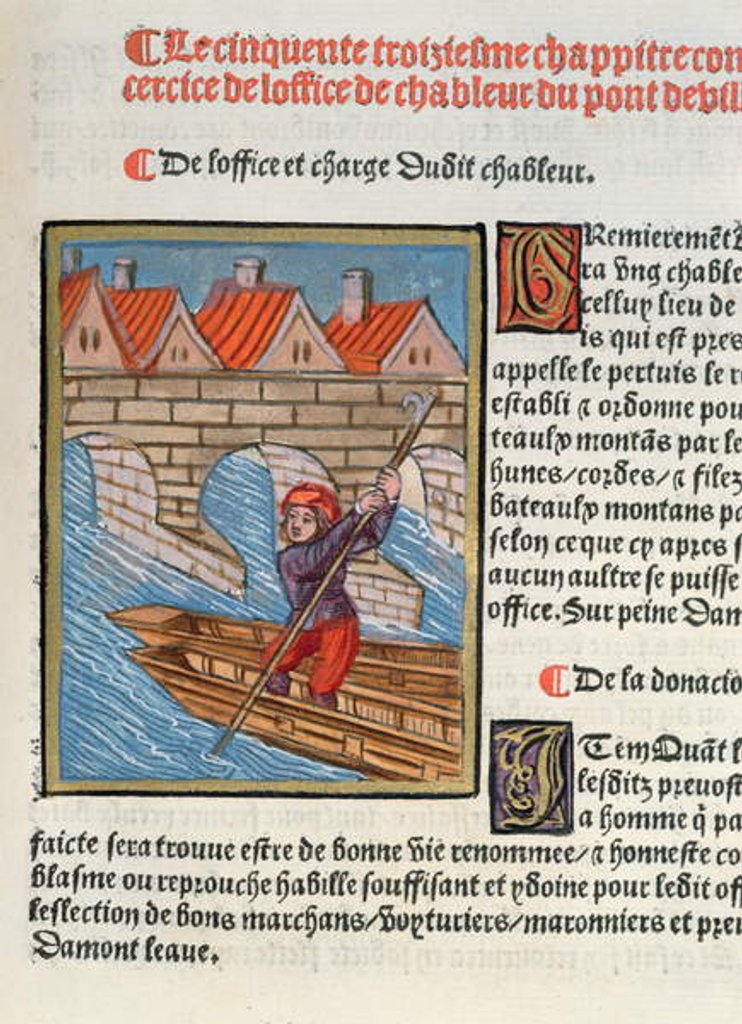 Le cinquente troiziesme chappitre con
cercice de loffice de chableur du pont de vill
De loffice et charge Dudit chableur.
PRemieremẽt
ra vng chable
celluy lieu de
is qui est pres
appelle le pertuis le r
establi ⁊ ordonne pou
teaulx montãs par le
hunes/cordes/⁊ filez
bateaulx montans pa
selon ce que cy apres s
aucun aultre se puisse
office. Sur peine Dam
De la donacio
ITem Quãt l
lesditz preuost
a homme q̃ pa
faicte sera trouue estre de bonne vie renommee/⁊ honneste co
blasme ou reprouche habille souffisant et ydoine pour ledit off
leslection de bons marchans/voyturiers/maronniers et preu
Damont leaue.